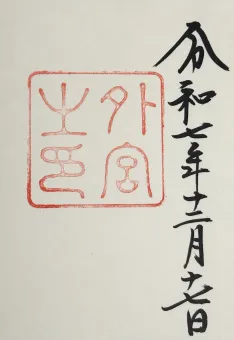 令和七年十二月十七日
外宮
之印